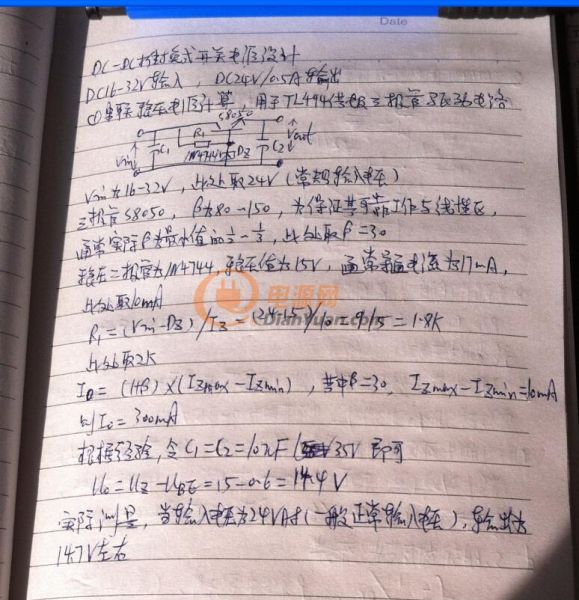 Date
DC-DC推挽式开关电源设计
DC16-32V输入，DC24V/0.5A输出
①串联稳压电源计算，用于TL494供电及三极管驱动电路
S8050
Vin C1 R1 1N4744 DZ C2 Vout
Vin为16-32V，此处取24V（常规输入电压）
三极管S8050，β为80-150，为保证其可靠工作与线性区，
通常实际β为最小值的1/2-1/3，此处取β=30
稳压二极管为1N4744，稳压值为15V，通常稳定电流为17mA，
此处取10mA
电源网
DianYuan.com
R1=(Vin-DZ)/IZ=(24-15)/10=9/15=1.8K
此处取2K
I0=(1+β)×(IZmax-IZmin)，其中β=30，IZmax-IZmin=10mA
则I0=300mA
根据经验，令C1=C2=10uF/35V即可
U0=UZ-UBE=15-0.6=14.4V
实际测量，当输入电压为24V时（一般正常输入电压），输出为
14.7V左右